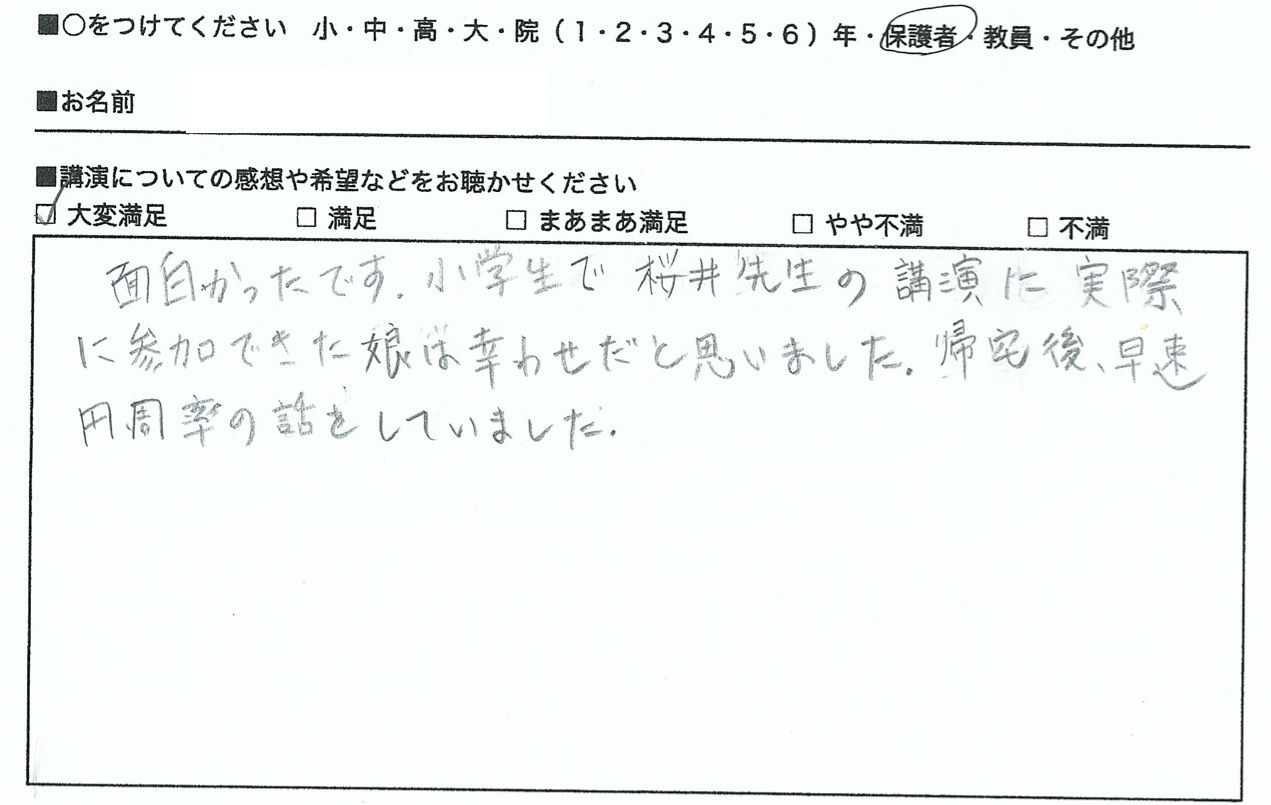 ■○をつけてください 小・中・高・大・院（1・2・3・4・5・6）年・保護者・教員・その他
■お名前
■講演についての感想や希望などをお聴かせください
☑ 大変満足 □ 満足 □ まあまあ満足 □ やや不満 □ 不満
面白かったです．小学生で桜井先生の講演に実際
に参加できた娘は幸わせだと思いました．帰宅後、早速
円周率の話をしていました．